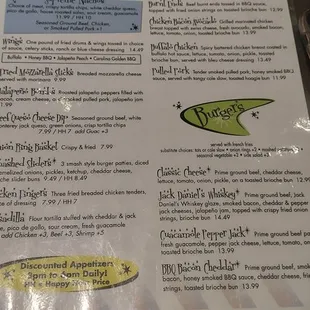 7.99 / HH 7
Seasoned Ground Beef, Chicken,
or Smoked Pulled Pork +1
Wings One pound of fried drums & wings tossed in
sauce, celery sticks, ranch or bleu cheese dressing 14.49
Buffalo • Honey BBQ • Jalapeño Peach • Carolina Golden BBQ
Fried Mozzarella Sticks Breaded mozzarella cheese
served with marinara 9.99
Jalapeño Roasted jalapeño peppers filled with
bacon, cream cheese, smoked pulled pork
Beef Queso Cheese Dip Seasoned ground beef, white
monterey jack queso, green onions, crisp tortilla chips
7.99 / HH 7 add Guac +3
Onion Ring Basket Crispy & fried 7.99
Smashed Sliders 3 smash style burger patties, diced
caramelized onions, pickles, ketchup, cheddar cheese,
slider buns 9.49 / HH 8.49
Chicken Fingers Three fried breaded chicken tenders,
7.99 / HH 7
Quesadilla Flour tortilla stuffed with cheddar & jack
cheese, pico de gallo, sour cream, fresh guacamole
add Chicken +3, Beef +3, Shrimp +5
Discounted Appetizers
3pm to 6pm Daily!
HH = Happy Hour Price
Burnt Ends Beef burnt ends tossed in BBQ sauce,
with fried onion strings on toasted brioche bun 13.99
Chicken Bacon Avocado Grilled marinated chicken
breast topped with
cheese, lettuce, tomato, onion, toasted brioche bun 13.99
Buffalo Chicken Spicy battered chicken breast coated in
buffalo hot sauce, lettuce, tomato, onion, pickle, toasted
brioche bun, choice of dressing 13.49
Pulled Pork House smoked pulled pork, honey smoked BBQ
sauce, served with tangy cole slaw, toasted hoagie bun 11.99
Burgers
served with fresh fries
substitute choices: tots or cole slaw • onion
seasonal vegetable +2 • side salad +3
Classic Cheese* Prime ground beef, Jack or Cheddar,
lettuce, tomato, onion, pickle, on a toasted brioche bun 12.99
Jack Daniel's Whiskey* Prime ground beef, Jack
Daniel's Whiskey glaze, smoked bacon, cheddar & pepper
jack cheeses, jalapeño jam, topped with crispy fried onion
strings, brioche bun 14.49
Guacamole Pepper Jack* Prime ground beef,
fresh guacamole, pepper jack cheese, lettuce, tomato, onion,
toasted brioche bun 13.99
BBQ Bacon Cheddar* Prime ground beef, smoked
bacon, honey smoked BBQ sauce, cheddar cheese, crispy fried
onion strings, toasted brioche bun 13.99